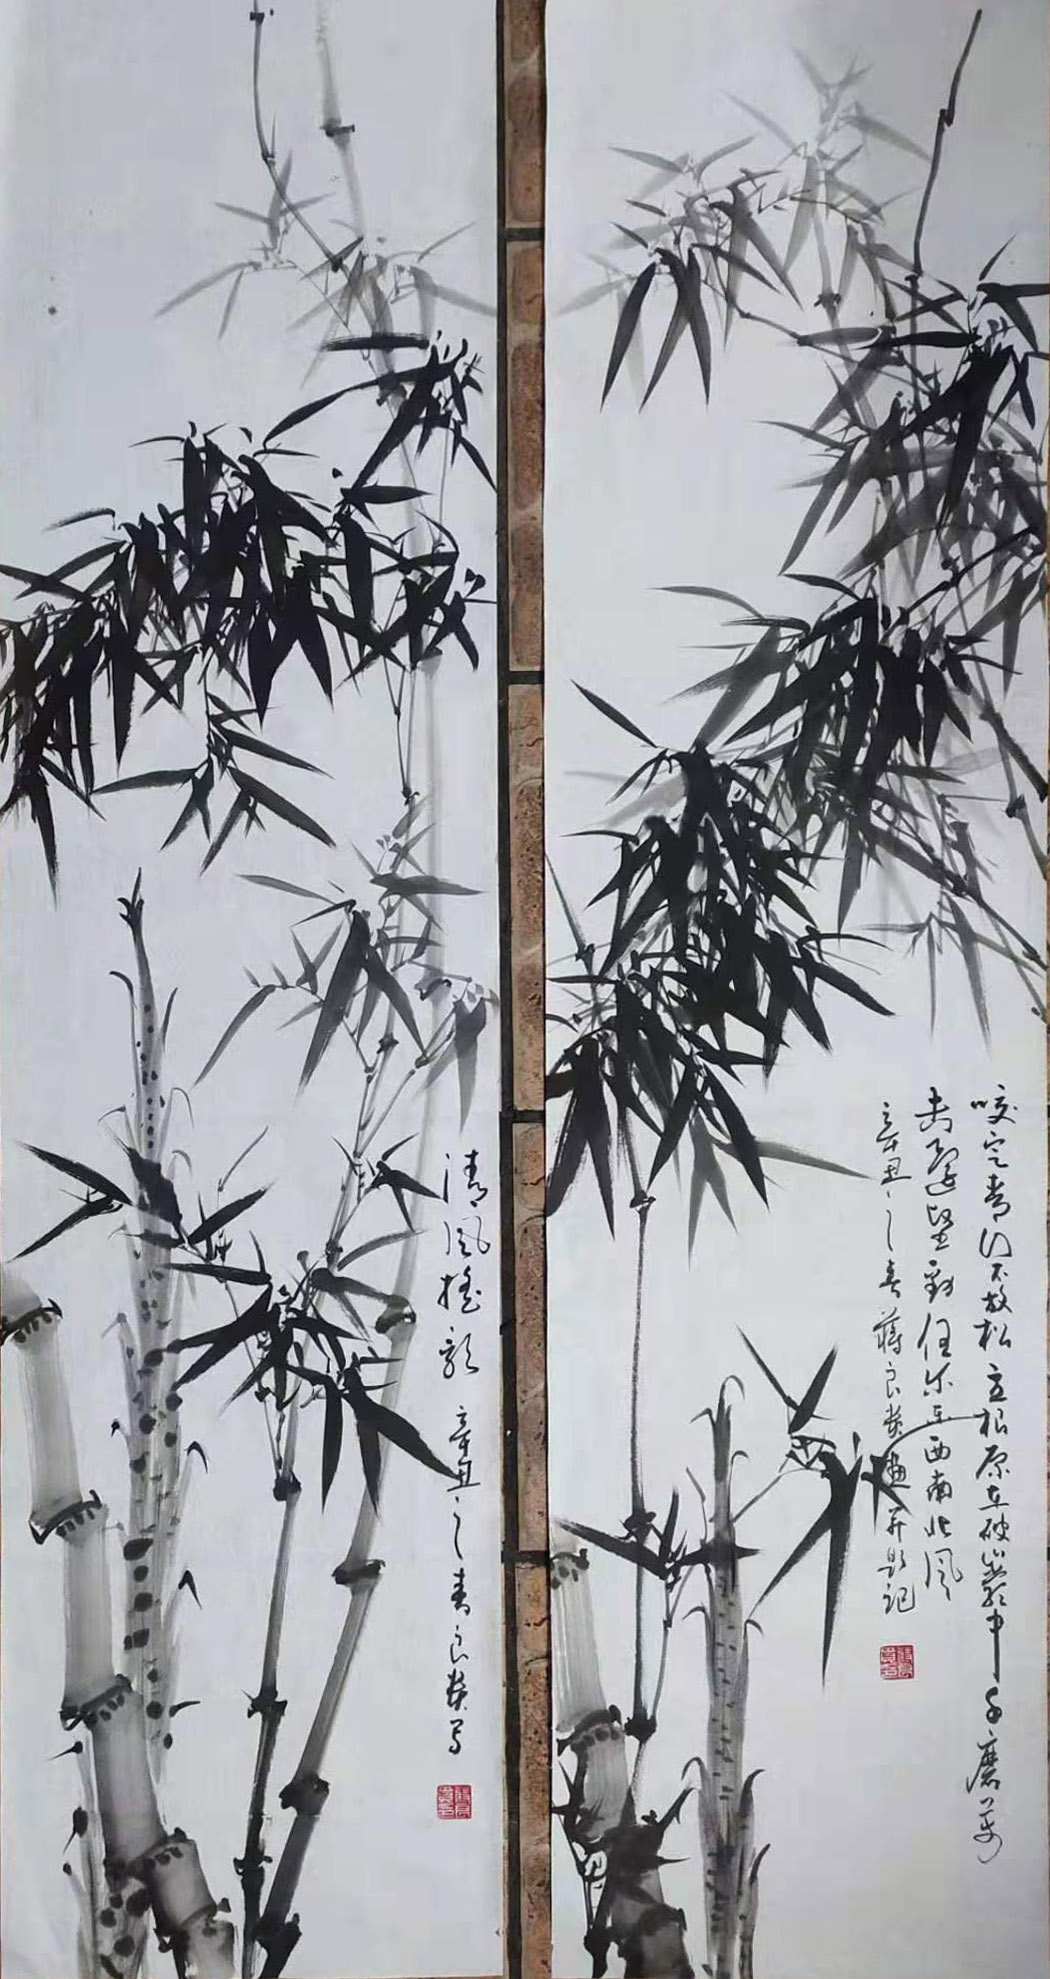 咬定青山不放松立根原在破岩中千磨万
击还坚劲任尔东西南北风
辛丑之春蒋良发画并题记
清风摇影
辛丑之春良发写